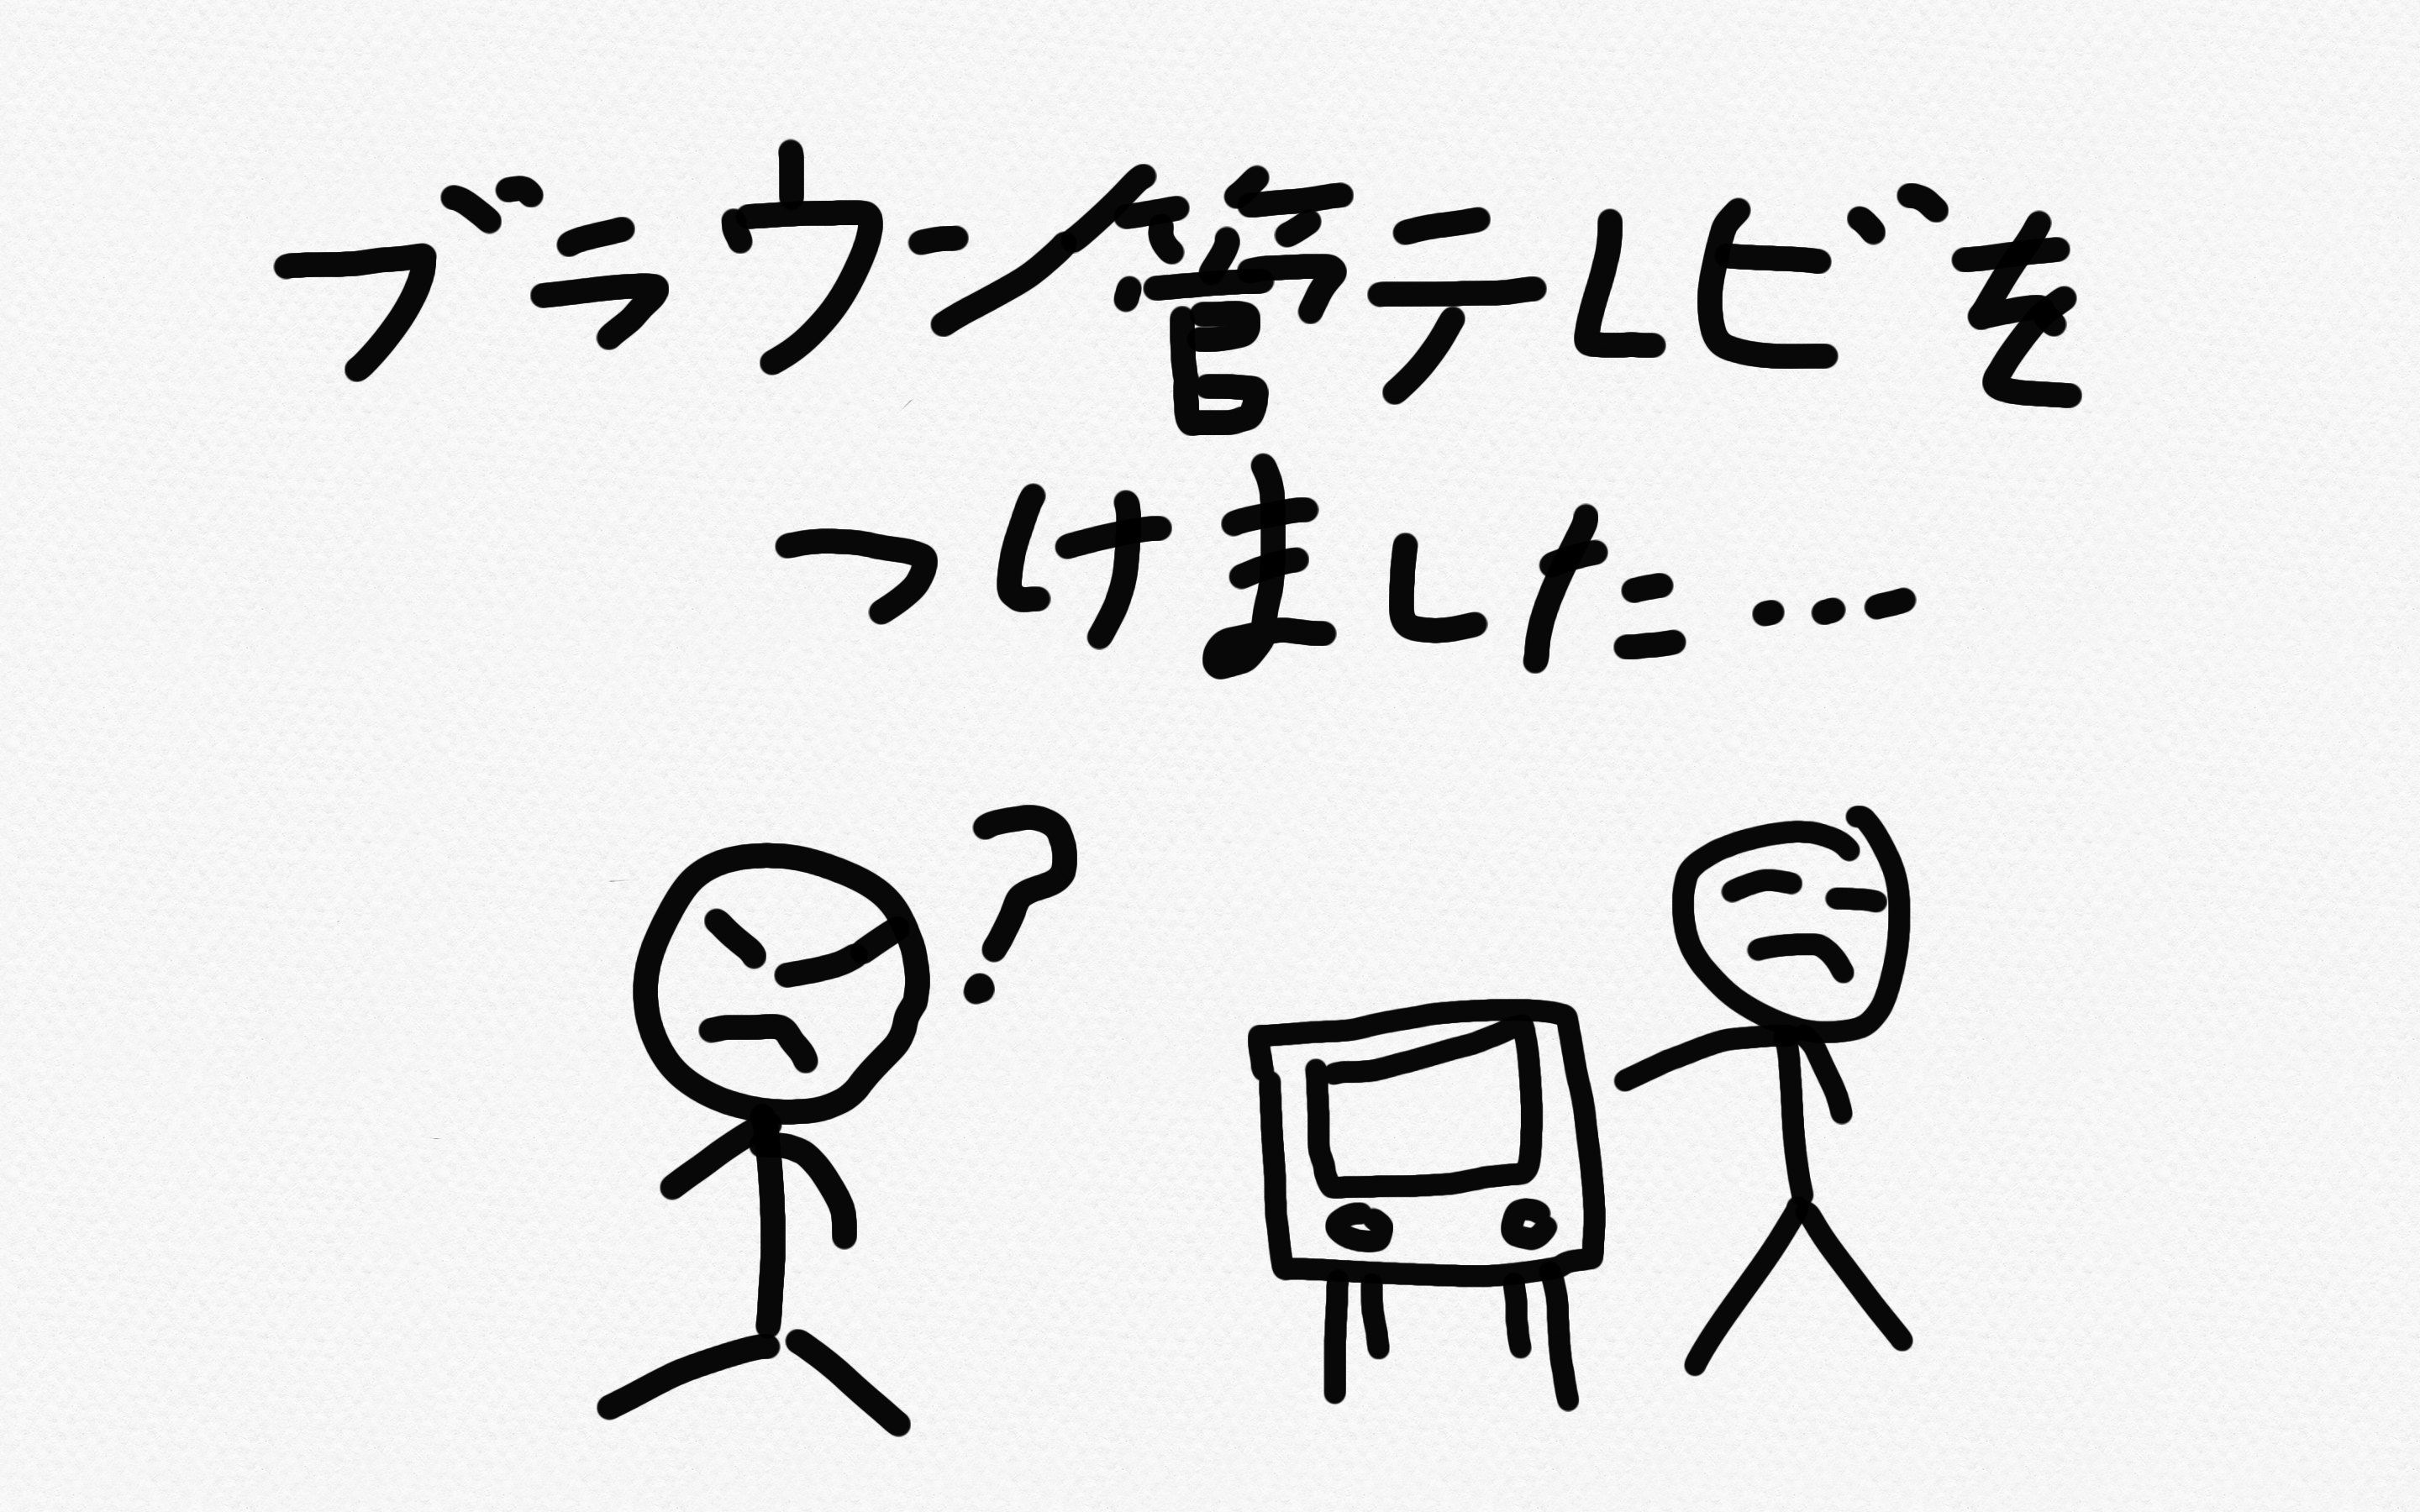 ブラウン管テレビを
つけました…
?